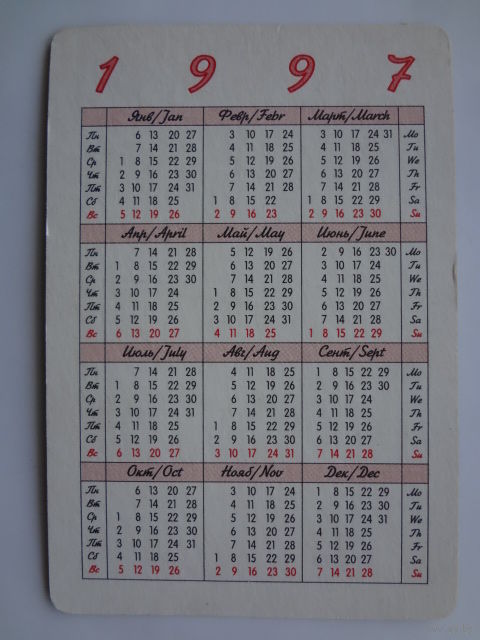 1 9 9 7
Янв/Jan Февр/Febr Март/March
Пн 6 13 20 27 3 10 17 24 3 10 17 24 31 Mo
Вт 7 14 21 28 4 11 18 25 4 11 18 25 Tu
Ср 1 8 15 22 29 5 12 19 26 5 12 19 26 We
Чт 2 9 16 23 30 6 13 20 27 6 13 20 27 Th
Пт 3 10 17 24 31 7 14 21 28 7 14 21 28 Fr
Сб 4 11 18 25 1 8 15 22 1 8 15 22 29 Sa
Вс 5 12 19 26 2 9 16 23 2 9 16 23 30 Su
Апр/April Май/May Июнь/June
Пн 7 14 21 28 5 12 19 26 2 9 16 23 30 Mo
Вт 1 8 15 22 29 6 13 20 27 3 10 17 24 Tu
Ср 2 9 16 23 30 7 14 21 28 4 11 18 25 We
Чт 3 10 17 24 1 8 15 22 29 5 12 19 26 Th
Пт 4 11 18 25 2 9 16 23 30 6 13 20 27 Fr
Сб 5 12 19 26 3 10 17 24 31 7 14 21 28 Sa
Вс 6 13 20 27 4 11 18 25 1 8 15 22 29 Su
Июль/July Авг/Aug Сент/Sept
Пн 7 14 21 28 4 11 18 25 1 8 15 22 29 Mo
Вт 1 8 15 22 29 5 12 19 26 2 9 16 23 30 Tu
Ср 2 9 16 23 30 6 13 20 27 3 10 17 24 We
Чт 3 10 17 24 31 7 14 21 28 4 11 18 25 Th
Пт 4 11 18 25 1 8 15 22 29 5 12 19 26 Fr
Сб 5 12 19 26 2 9 16 23 30 6 13 20 27 Sa
Вс 6 13 20 27 3 10 17 24 31 7 14 21 28 Su
Окт/Oct Нояб/Nov Дек/Dec
Пн 6 13 20 27 3 10 17 24 1 8 15 22 29 Mo
Вт 7 14 21 28 4 11 18 25 2 9 16 23 30 Tu
Ср 1 8 15 22 29 5 12 19 26 3 10 17 24 31 We
Чт 2 9 16 23 30 6 13 20 27 4 11 18 25 Th
Пт 3 10 17 24 31 7 14 21 28 5 12 19 26 Fr
Сб 4 11 18 25 1 8 15 22 29 6 13 20 27 Sa
Вс 5 12 19 26 2 9 16 23 30 7 14 21 28 Su